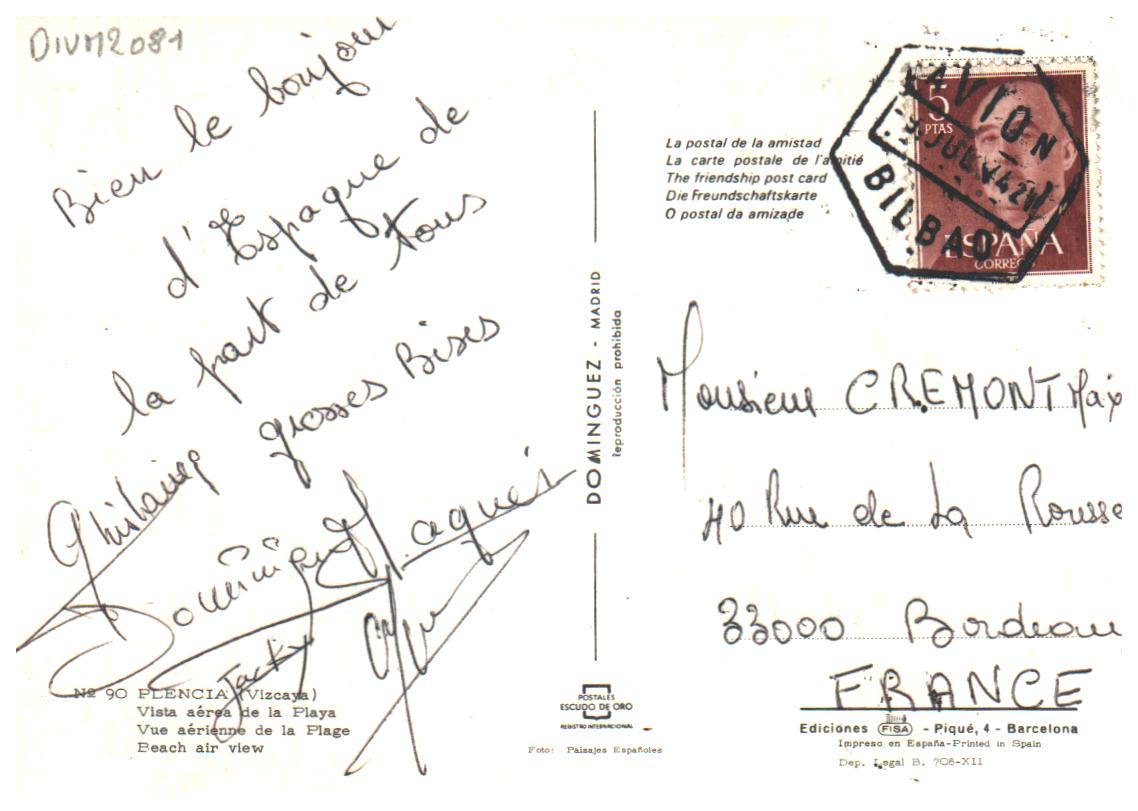 DIVM2081
Bien le bonjour
d'Espagne de
la part de tous
grosses Bises
Ghislaine
Dominique
Jacques
Jacky
Nº 90 PLENCIA (Vizcaya)
Vista aérea de la Playa
Vue aérienne de la Plage
Beach air view
DOMINGUEZ - MADRID
reproducción prohibida
POSTALES
ESCUDO DE ORO
REGISTRO INTERNACIONAL
Foto: Paisajes Españoles
La postal de la amistad
La carte postale de l'amitié
The friendship post card
Die Freundschaftskarte
O postal da amizade
5
PTAS
ESPAÑA
CORREOS
AVION
BILBAO
Monsieur CREMONT Max
40 Rue de La Rousse
33000 Bordeau
FRANCE
Ediciones FISA - Piqué, 4 - Barcelona
Impreso en España-Printed in Spain
Dep. Legal B. 708-XII